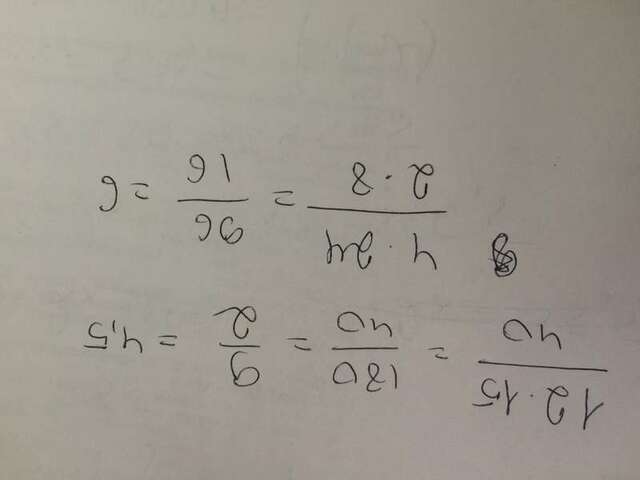 12·15/40 = 180/40 = 9/2 = 4,5
4·24/2·8 = 96/16 = 6